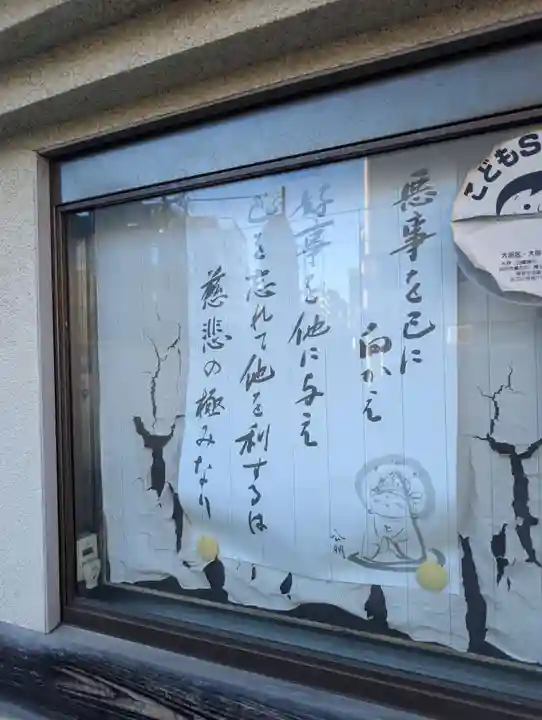 悪事を己に
向かえ
好事を他に与え
己を忘れて他を利するは
慈悲の極みなり
こどもS